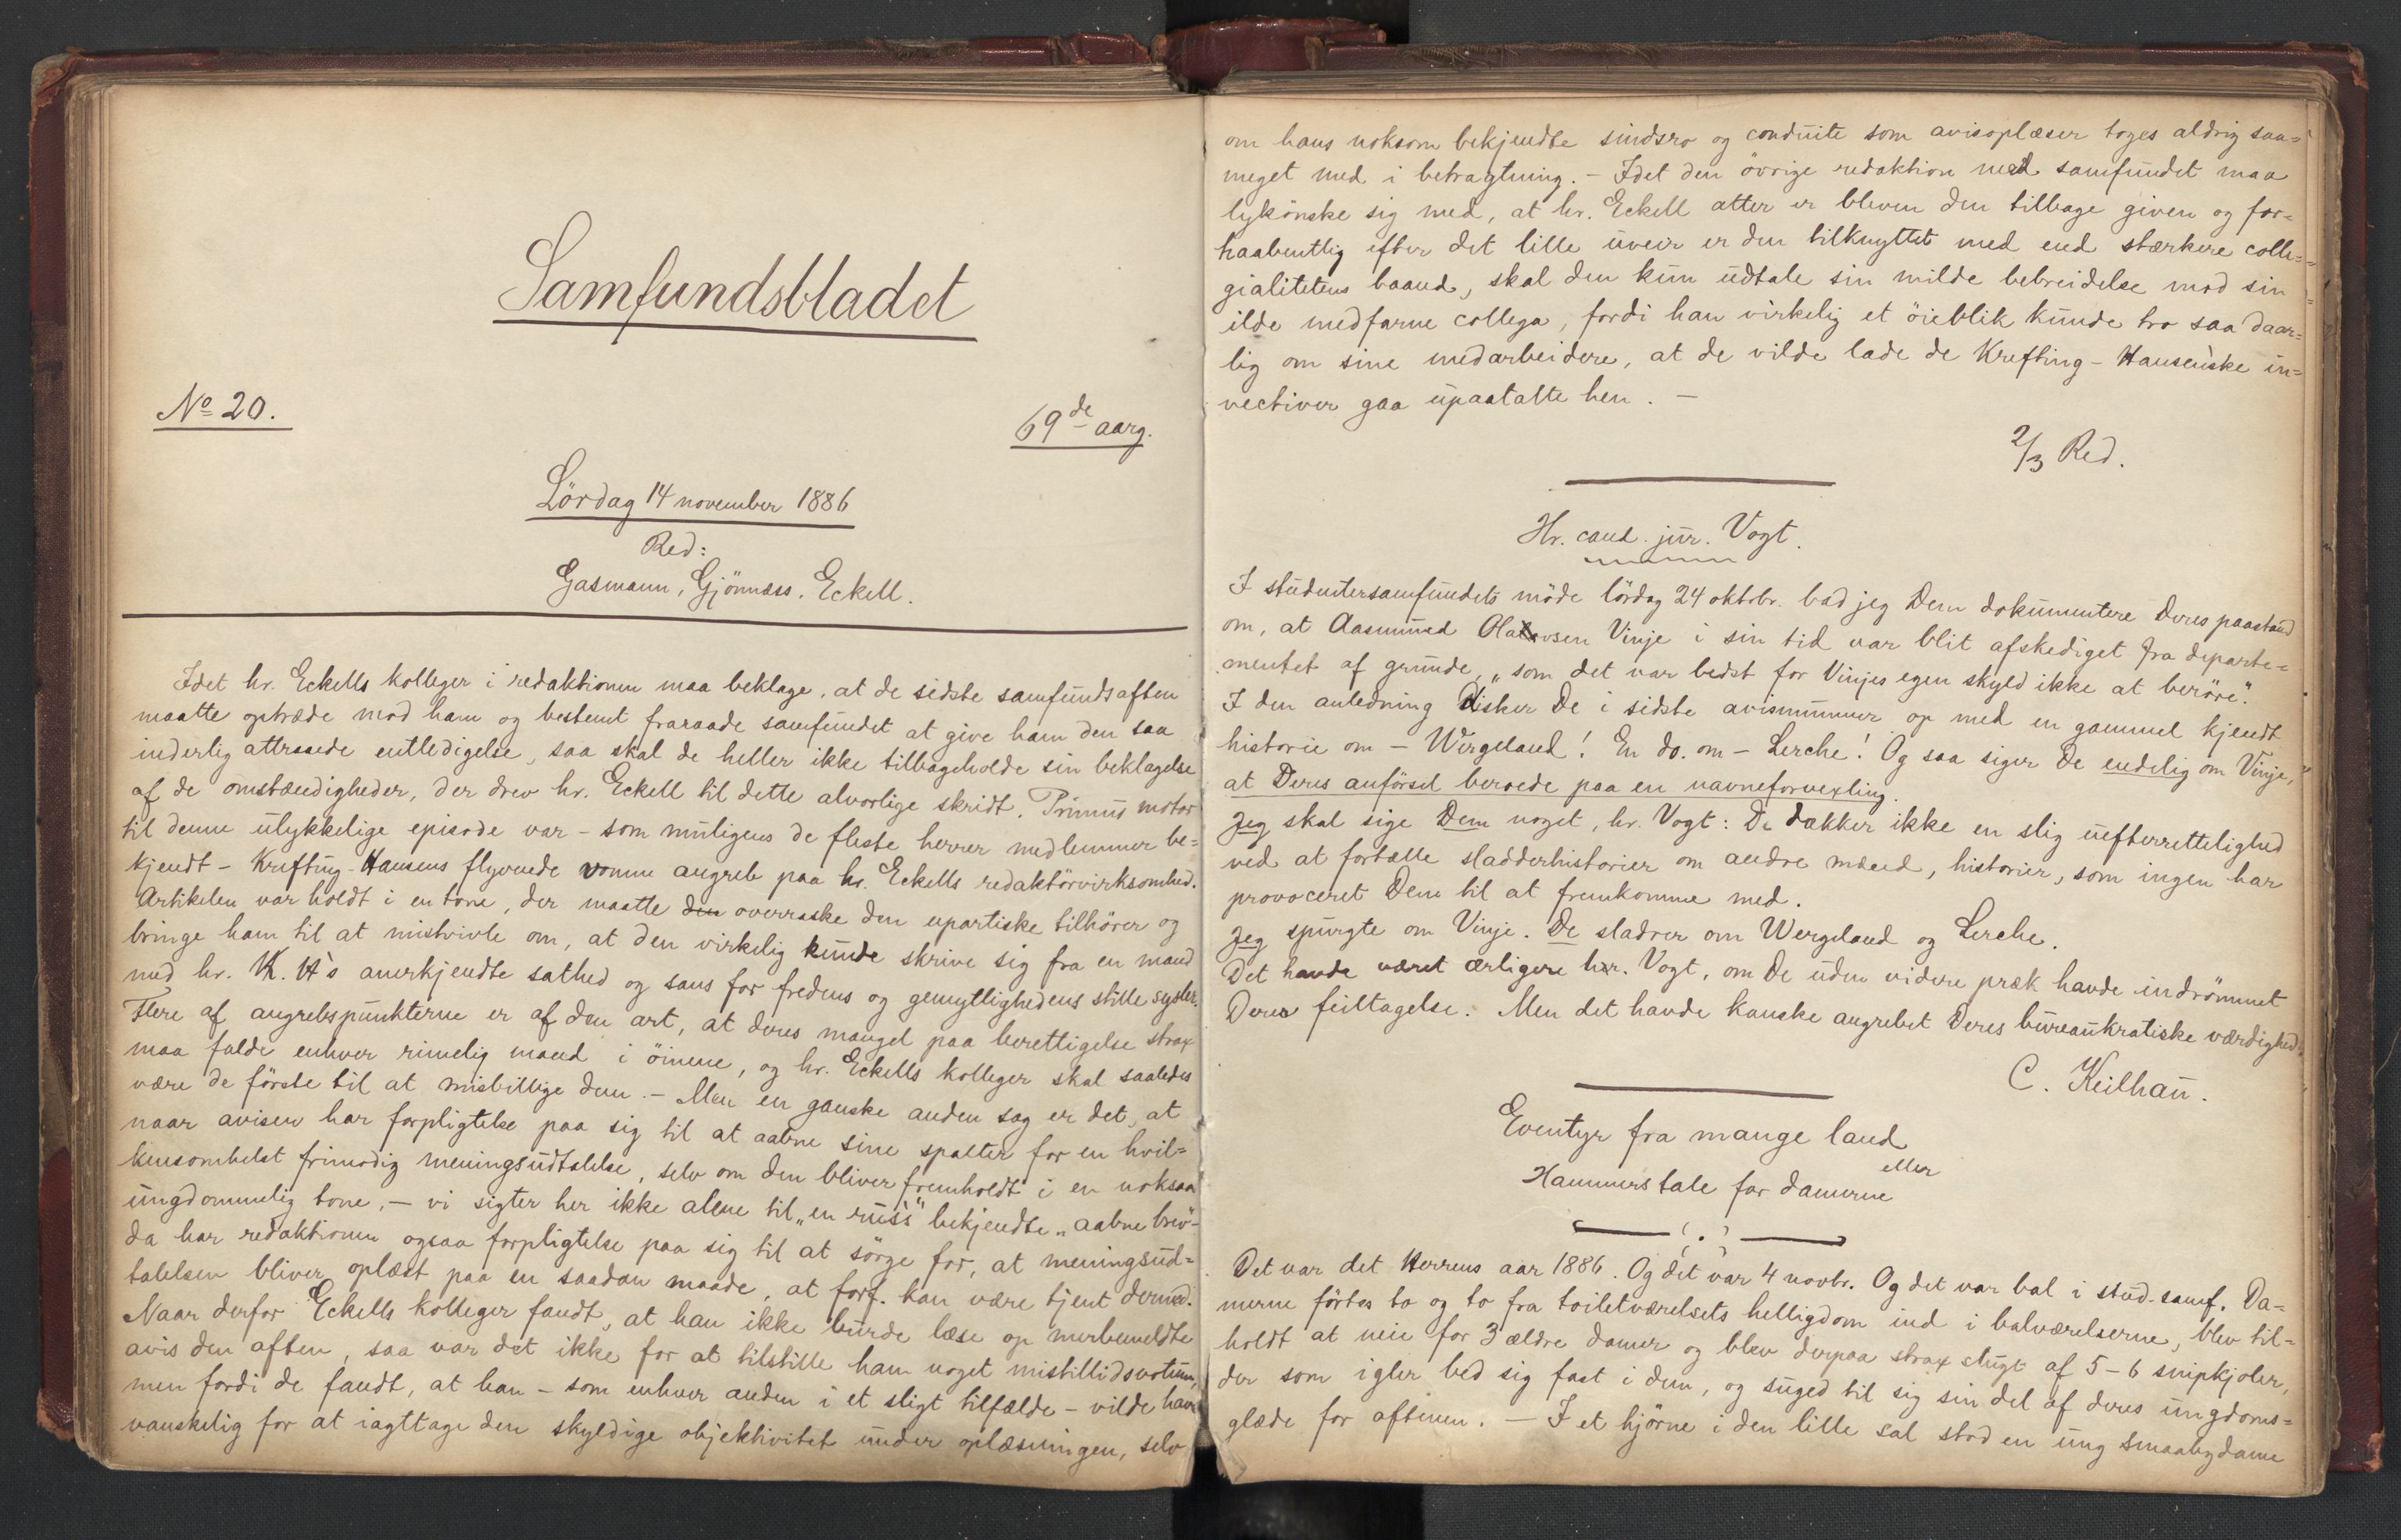 Samfundsbladet
No 20.
69de aarg.
Lördag 14 november 1886
Red:
Gasmann, Gjönnæss, Eckell.
Idet hr. Eckells kolleger i redaktionen maa beklage, at de sidste samfundsaften
maatte optræde mod ham og bestemt fraraade samfundet at give ham den saa
inderlig attraaede entledigelse, saa skal de heller ikke tilbageholde sin beklagelse
af de omstændigheder, der drev hr. Eckell til dette alvorlige skridt. Primus motor
til denne ulykkelige episode var - som muligens de fleste herrer medlemmer be-
kjendt - Krefting-Hansens flyvende vomme angreb paa hr. Eckells redaktörvirksomhed.
Artikelen var holdt i en tone, der maatte den overraske den upartiske tilhörer og
bringe ham til at mistvivle om, at den virkelig kunde skrive sig fra en mand
med hr. K. H's anerkjendte sathed og sans for fredens og gemytlighedens stille sysler.
Flere af angrebspunkterne er af den art, at deres mangel paa berettigelse strax
maa falde enhver rimelig mand i öinene, og hr. Eckells kolleger skal saaledes
være de förste til at misbillige dem. - Men en ganske anden sag er det, at
naar avisen har forpligtelse paa sig til at aabne sine spalter for en hvil-
kensomhelst frimodig meningsudtalelse, selv om den bliver fremholdt i en noksaa
ungdommelig tone, - vi sigter her ikke alene til „en russ's" bekjendte „aabne brev" -
da har redaktionen ogsaa forpligtelse paa sig til at sörge for, at meningsud-
talelsen bliver oplæst paa en saadan maade, at forf. kan være tjent dermed.
Naar derfor Eckells kolleger fandt, at han ikke burde læse op merbemeldte
avis den aften, saa var det ikke for at tilstille ham noget mistillidsvotum,
men fordi de fandt, at han - som enhver anden i et sligt tilfælde - vilde have
vanskelig for at iagttage den skyldige objektivitet under oplæsningen, selv
om hans noksom bekjendte sindsro og conduite som avisoplæser toges aldrig saa-
meget med i betragtning. - Idet den övrige redaktion med samfundet maa
lykönske sig med, at hr. Eckell atter er bleven den tilbage given og for-
haabentlig efter det lille uveir er den tilknyttet med end stærkere colle-
gialitetens baand, skal den kun udtale sin milde bebreidelse mod sin
ilde medfarne collega, fordi han virkelig et öieblik kunde tro saa daar-
lig om sine medarbeidere, at de vilde lade de Krefting-Hansen'ske in-
vectiver gaa upaatalte hen. -
2/3 Red.
Hr. cand. jur. Vogt.
I studentersamfundets möde lördag 24 oktobr. bad jeg Dem dokumentere Deres paastand
om, at Aasmund Olavsen Vinje i sin tid var blit afskediget fra departe-
mentet af grunde, „som det var bedst for Vinjes egen skyld ikke at beröre".
I den anledning disker De i sidste avisnummer op med en gammel kjendt
historie om - Wergeland! En do. om - Lerche! Og saa siger De endelig om Vinje,
at Deres anförsel beroede paa en navneforvexling.
Jeg skal sige Dem noget, hr. Vogt: De dækker ikke en slig uefterrettelighed
ved at fortælle sladderhistorier om andre mænd, historier, som ingen har
provoceret Dem til at fremkomme med.
Jeg spurgte om Vinje. De sladrer om Wergeland og Lerche.
Det havde været ærligere hr. Vogt, om De uden videre præk havde indrömmet
Deres feiltagelse. Men det havde kanske angrebet Deres bureaukratiske værdighed.
C. Keilhau.
Eventyr fra mange land
eller
Hammers tale for damerne
Det var det Herrens aar 1886. Og det var 4 novbr. Og det var bal i stud. samf. Da-
merne förtes to og to fra toiletværelsets helligdom ind i balværelserne, blev til-
holdt at neie for 3 ældre damer og blev derpaa strax slugt af 5-6 snipkjoler,
der som igler bed sig fast i dem, og suged til sig sin del af deres ungdoms-
glæde for aftenen. - I et hjörne i den lille sal stod en ung smaabydame